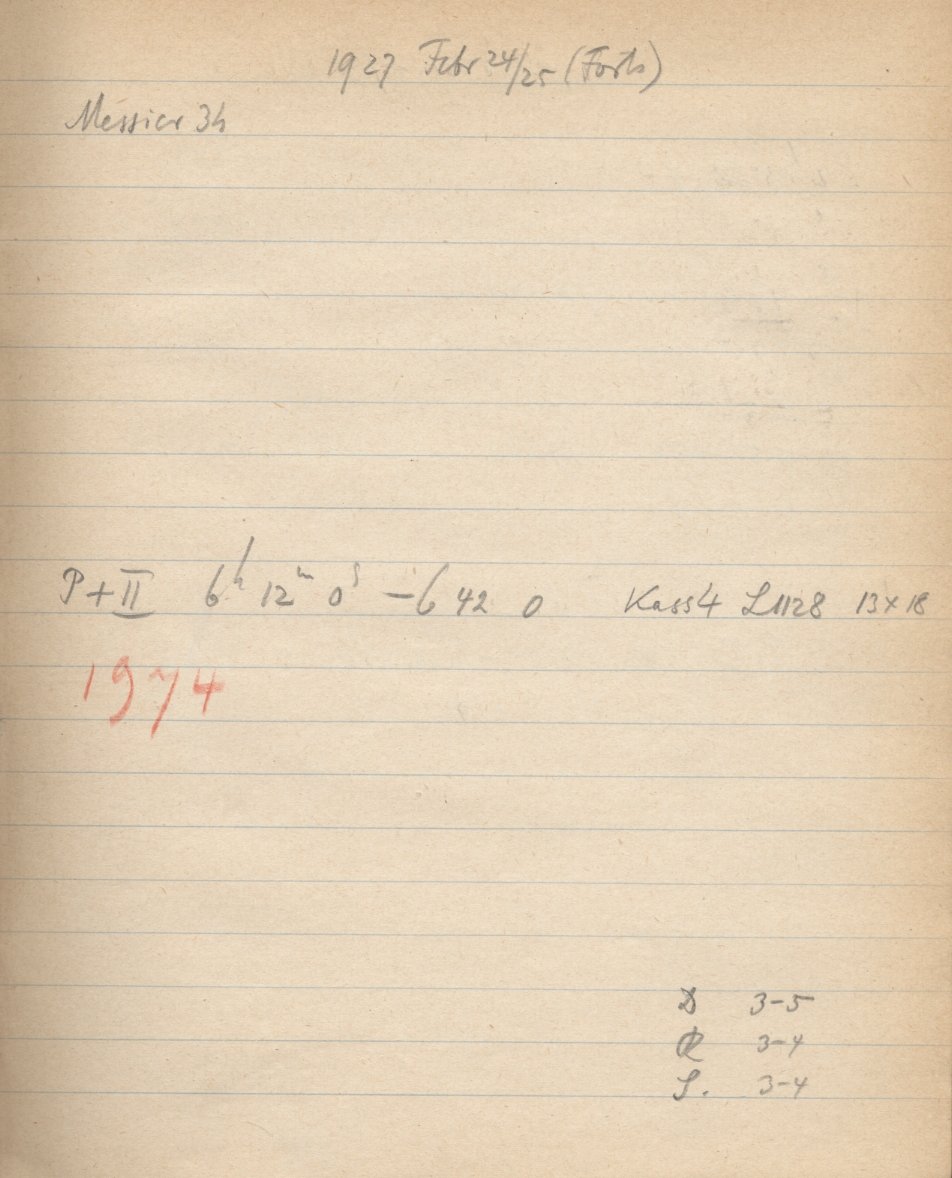 1927 Febr 24/25 (Forts)
Messier 34
P+II 6h 12m 0s -6 42 0 Kass4 L1128 13x18
1974
D 3-5
R 3-4
S. 3-4